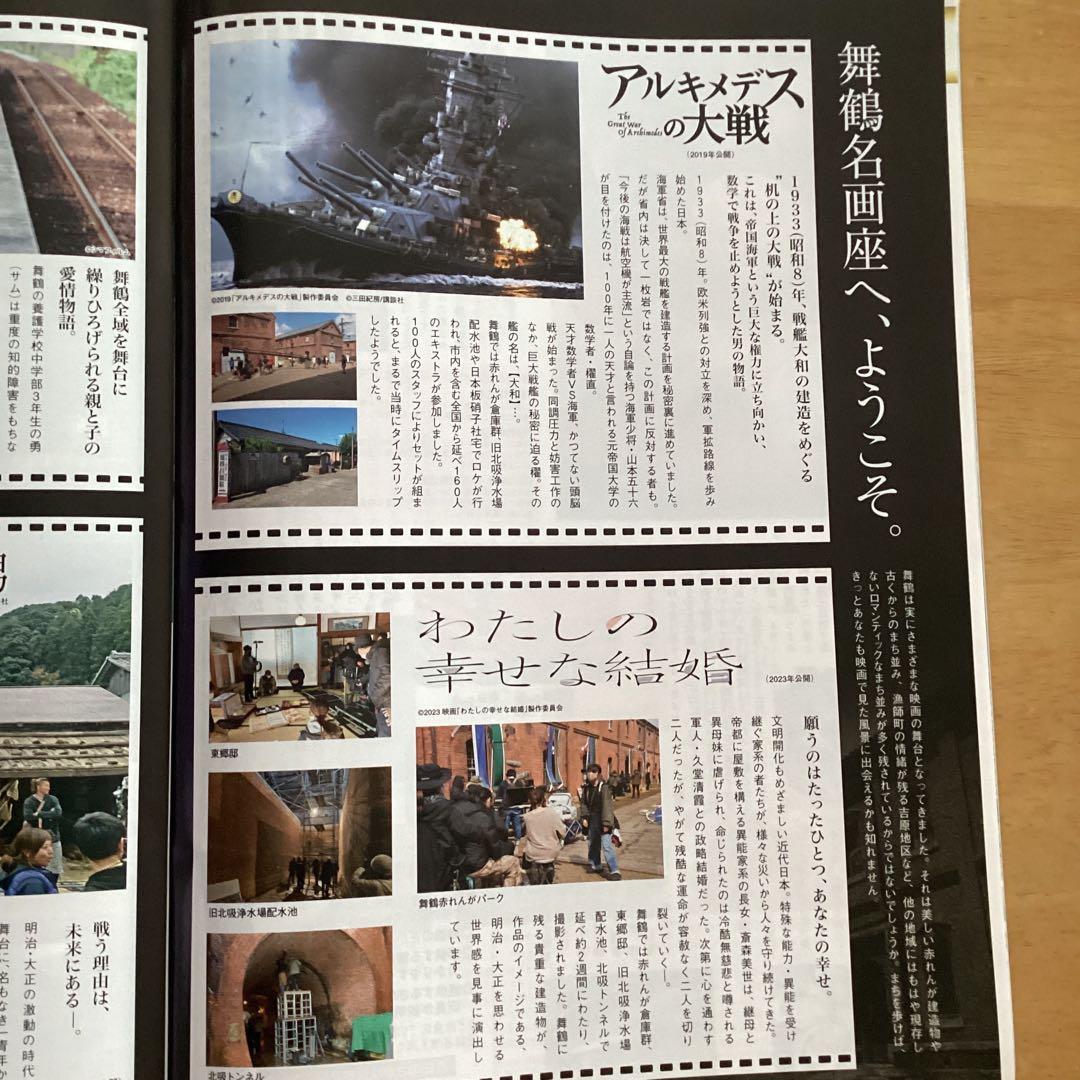 舞鶴名画座へ、ようこそ。
舞鶴は実にさまざまな映画の舞台となってきました。それは美しい赤れんが建造物や
古くからのまち並み、漁師町の情緒が残る吉原地区など、他の地域にはもはや現存し
ないロマンティックなまち並みが多く残されているからではないでしょうか。まちを歩けば、
きっとあなたも映画で見た風景に出会えるかも知れません。
アルキメデス
の大戦
The
Great War
Of Archimedes
(2019年公開)
1933(昭和8)年、戦艦大和の建造をめぐる
“机の上の大戦”が始まる。
これは、帝国海軍という巨大な権力に立ち向かい、
数学で戦争を止めようとした男の物語。
1933(昭和8)年。欧米列強との対立を深め、軍拡路線を歩み
始めた日本。
海軍省は、世界最大の戦艦を建造する計画を秘密裏に進めていました。
だが省内は決して一枚岩ではなく、この計画に反対する者も。
「今後の海戦は航空機が主流」という自論を持つ海軍少将・山本五十六
が目を付けたのは、100年に一人の天才と言われる元帝国大学の
数学者・櫂直。
天才数学者VS海軍、かつてない頭脳
戦が始まった。同調圧力と妨害工作の
なか、巨大戦艦の秘密に迫る櫂。その
艦の名は【大和】…。
舞鶴では赤れんが倉庫群、旧北吸浄水場
配水池や日本板硝子社宅でロケが行
われ、市内を含む全国から延べ160人
のエキストラが参加しました。
100人のスタッフによりセットが組ま
れると、まるで当時にタイムスリップ
したようでした。
©2019「アルキメデスの大戦」製作委員会 ©三田紀房/講談社
わたしの
幸せな結婚
(2023年公開)
©2023 映画「わたしの幸せな結婚」製作委員会
願うのはたったひとつ、あなたの幸せ。
文明開化もめざましい近代日本。特殊な能力・異能を受け
継ぐ家系の者たちが、様々な災いから人々を守り続けてきた。
帝都に屋敷を構える異能家系の長女・斎森美世は、継母と
異母妹に虐げられ、命じられたのは冷酷無慈悲と噂される
軍人・久堂清霞との政略結婚だった。次第に心を通わす
二人だったが、やがて残酷な運命が容赦なく二人を切り
裂いていく―。
舞鶴では赤れんが倉庫群、
東郷邸、旧北吸浄水場
配水池、北吸トンネルで
延べ約2週間にわたり、
撮影されました。舞鶴に
残る貴重な建造物が、
作品のイメージである、
明治・大正を思わせる
世界感を見事に演出し
ています。
東郷邸
旧北吸浄水場配水池
舞鶴赤れんがパーク
北吸トンネル
©シマフィルム
舞鶴全域を舞台に
繰りひろげられる親と子の
愛情物語。
舞鶴の養護学校中学部3年生の勇
(サム)は重度の知的障害をもちな
戦う理由は、
未来にある―。
明治・大正の激動の時代
舞台に、名もなき一青年か